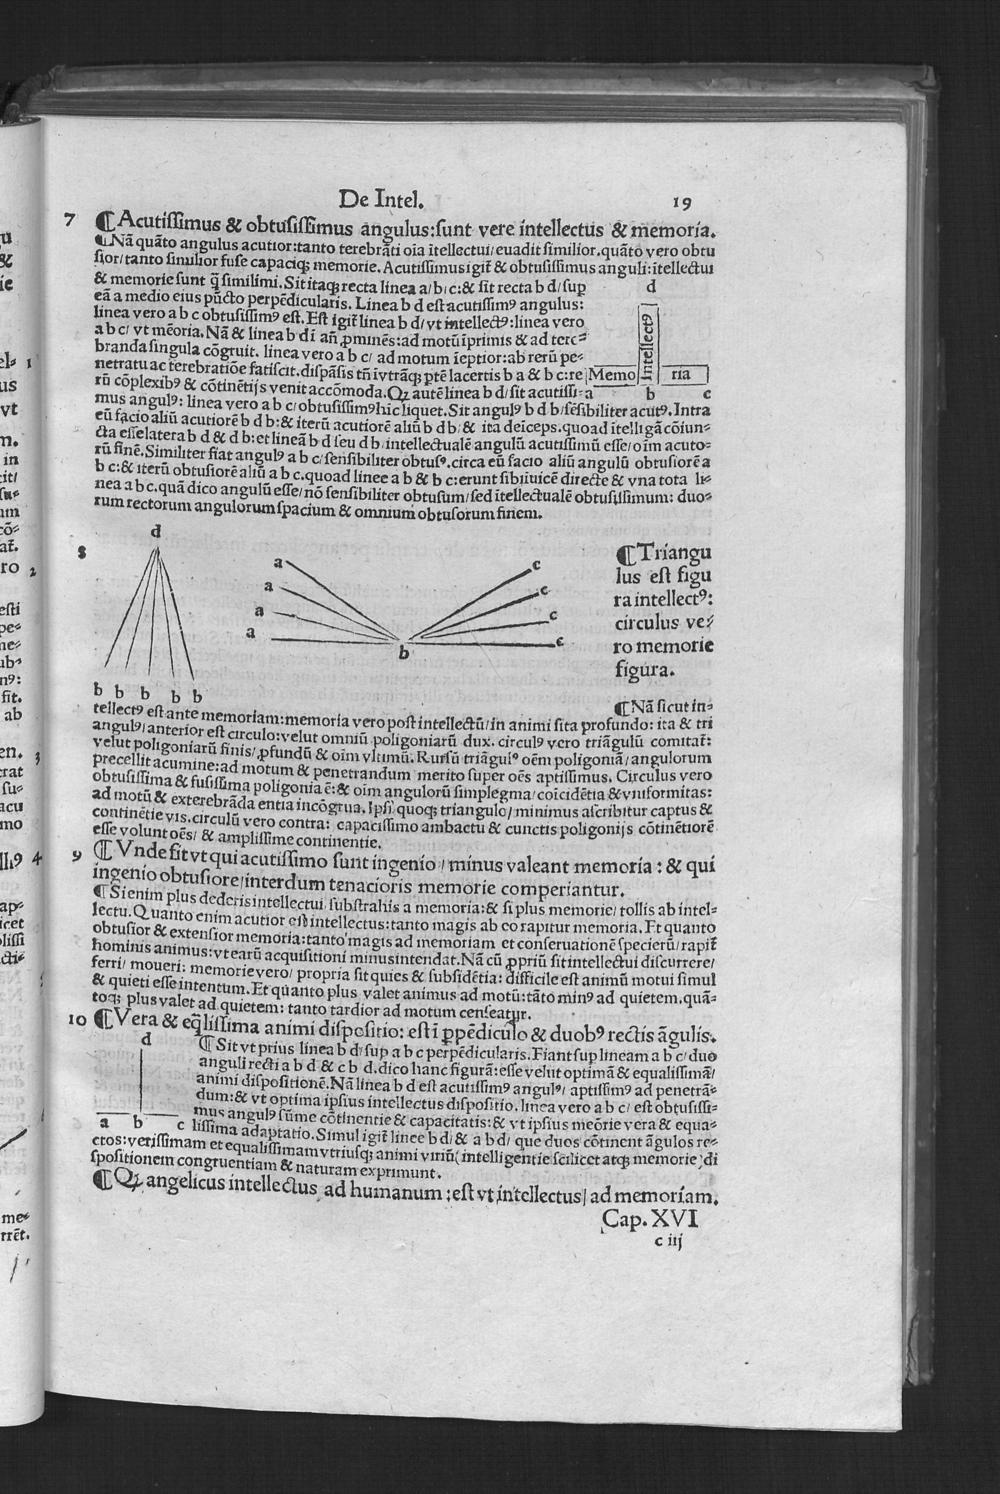 De Intel. 19
7 ¶Acutissimus & obtusissimus angulus:sunt vere intellectus & memoria.
¶Nã quãto angulus acutior:tanto terebrãti oia ĩtellectui/euadit similior.quãto vero obtu
sior/tanto similior fuse capaciq; memorie. Acutissimus igit̃ & obtusissimus anguli:ĩtellectui
& memorie sunt q̃ simillimi. Sit itaq; recta linea a/b/c:& sit recta b d/sup
eã a medio eius pũcto perpẽdicularis. Linea b d est acutissimꝰ angulus:
linea vero a b c obtusissimꝰ est. Est igit̃ linea b d/vt intellectꝰ:linea vero
a b c/ vt mẽoria. Nã & linea b d ĩ añ ꝓminẽs:ad motũ ĩprimis & ad tere⸗
branda singula cõgruit. linea vero a b c/ ad motum ĩeptior:ab rerũ pe⸗
netratu ac terebratiõe fatiscit.dispãsis tñ ĩvtrãq; ꝑtẽ lacertis b a & b c:re
rũ cõplexibꝰ & cõtinẽtijs venit accõmoda.Qꝫ autẽ linea b d/sit acutissi⸗
d
Intellectꝰ
Memo ria
a b c
mus angulꝰ: linea vero a b c/obtusissimꝰ hic liquet. Sit angulꝰ b d b/sẽsibiliter acutꝰ. Intra
eũ facio aliũ acutiorẽ b d b:& iterũ acutiorẽ aliũ b d b/& ita deĩceps.quoad ĩtelligã cõiun⸗
cta esse latera b d & d b:et lineã b d seu d b/intellectualẽ angulũ acutissimũ esse/oĩm acuto⸗
rũ finẽ. Similiter fiat angulꝰ a b c/sensibiliter obtusꝰ.circa eũ facio aliũ angulũ obtusiorẽ a
b c:& iterũ obtusiorẽ aliũ a b c.quoad linee a b & b c:erunt sibiĩuicẽ directe & vna tota li⸗
nea a b c.quã dico angulũ esse/nõ sensibiliter obtusum/sed ĩtellectualẽ obtusissimum: duo⸗
rum rectorum angulorum spacium & omnium obtusorum finem.
8
d
b b b b b
a a a a
b
c c c c
¶Triangu
lus est figu
ra intellectꝰ:
circulus ve⸗
ro memorie
figura.
¶Nã sicut in⸗
tellectꝰ est ante memoriam:memoria vero post intellectũ/in animi sita profundo: ita & tri
angulꝰ/anterior est circulo:velut omniũ poligoniarũ dux. circulꝰ vero triãgulũ comitat̃:
velut poligoniarũ finis/ꝓfundũ & oĩm vltimũ. Rursũ triãgulꝰ oẽm poligoniã/angulorum
precellit acumine:ad motum & penetrandum merito super oẽs aptissimus. Circulus vero
obtusissima & fusissima poligonia ẽ:& oĩm angulorũ simplegma/coĩcidẽtia & vniformitas:
ad motũ & exterebrãda entia incõgrua. Ipsi quoq; triangulo/minimus ascribitur captus &
continẽtie vis.circulũ vero contra: capacissimo ambactu & cunctis poligonijs cõtinẽtiorẽ
esse volunt oẽs/ & amplissime continentie.
9 ¶Vnde fit vt qui acutissimo sunt ingenio/minus valeant memoria:& qui
ingenio obtusiore/interdum tenacioris memorie comperiantur.
¶Si enim plus dederis intellectui/substrahis a memoria:& si plus memorie/ tollis ab intel⸗
lectu. Quanto enim acutior est intellectus:tanto magis ab eo rapitur memoria. Et quanto
obtusior & extensior memoria:tanto magis ad memoriam et conseruationẽ specierũ/rapit̃
hominis animus:vt earũ acquisitioni minus intendat. Nã cũ ꝓpriũ sit intellectui discurrere/
ferri/ moueri: memorie vero/ propria sit quies & subsidẽtia: difficile est animũ motui simul
& quieti esse intentum. Et quanto plus valet animus ad motũ:tãto minꝰ ad quietem.quã⸗
toq; plus valet ad quietem: tanto tardior ad motum censeatur.
10 ¶Vera & eq̃lissima animi dispositio: est ĩ ꝑpẽdiculo & duobꝰ rectis ãgulis.
d
a b c
¶Sit vt prius linea b d/sup a b c perpẽdicularis. Fiant sup lineam a b c/duo
anguli recti a b d & c b d.dico hanc figurã:esse velut optimã & equalissimã/
animi dispositionẽ. Nã linea b d est acutissimꝰ angulꝰ/ aptissimꝰ ad penetrã⸗
dum:& vt optima ipsius intellectus dispositio. linea vero a b c/ est obtusissi⸗
mus angulꝰ sũme cõtinentie & capacitatis:& vt ipsius meõrie vera & equa⸗
lissima adaptatio. Simul igit̃ linee b d/& a b d/ que duos cõtinent ãgulos re⸗
ctos:verissimam et equalissimam vtriusq; animi viriũ(intelligentie scilicet atq; memorie)di
spositionem congruentiam & naturam exprimunt.
¶Qꝫ angelicus intellectus ad humanum:est vt intellectus/ad memoriam.
Cap. XVI
c iij